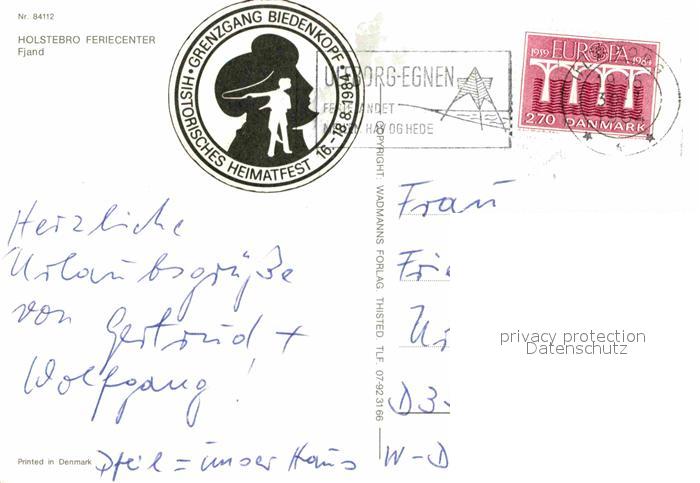 Nr. 84112
HOLSTEBRO FERIECENTER
Fjand
HISTORISCHES HEIMATFEST • GRENZGANG BIEDENKOPF 16.-18.8.1984
ULFBORG-EGNEN
FERIELANDET
MELLEM HAV OG HEDE
1959 EUROPA 1984
2.70 DANMARK
COPYRIGHT: WADMANNS FORLAG. THISTED. TLF. 07-92 31 66
Herzliche
Urlaubsgrüße
von Gertrud +
Wolfgang!
Pfeil = unser Haus
Frau
Fri
D3-
W-D
privacy protection
Datenschutz
Printed in Denmark